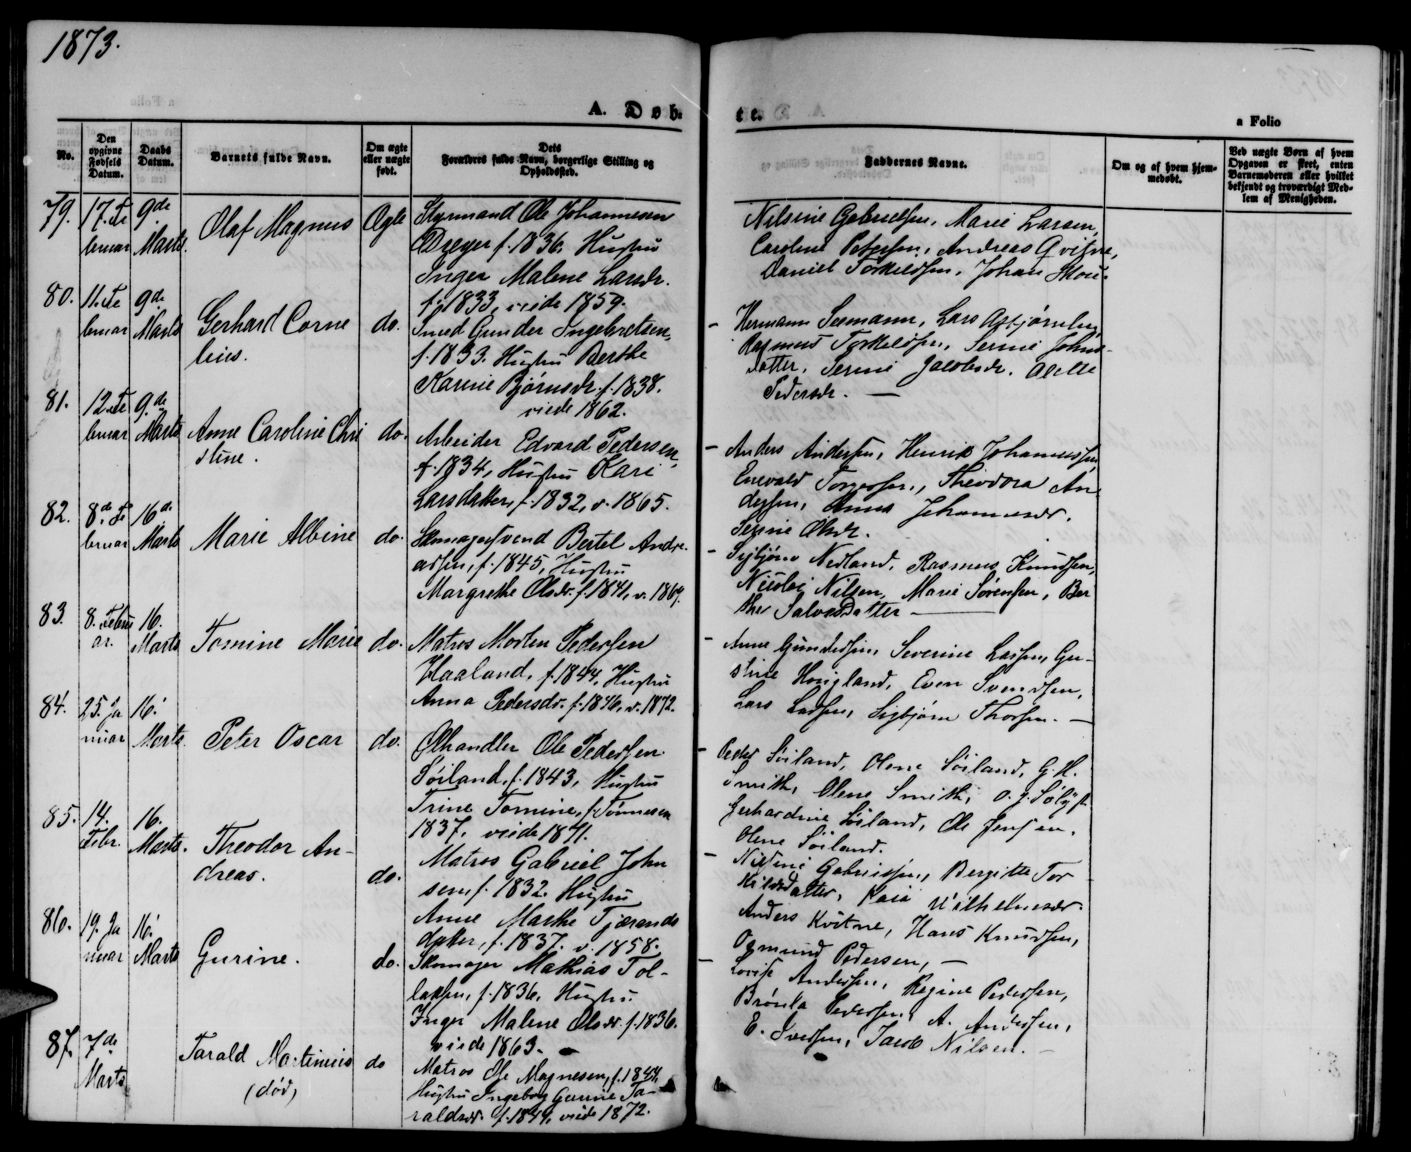 1873.
A. Døb-
te.
a Folio
No.
Den opgivne Fødsels Datum.
Daabs Datum.
Barnets fulde Navn.
Om ægte eller uægte født.
Forældres fulde Navn, borgerlige Stilling og Opholdssted.
Faddernes Navne.
Om og af hvem hjemmedøbt.
Ved uægte Børn af hvem Opgaven er skeet, enten Barnemoderen eller hvilket bekjendt og troværdigt Medlem af Menigheden.
79. 17. Februar 9de Marts. Olaf Magnus Ægte
Styrmand Ole Johannesen
Dreyer f. 1836. Hustru
Inger Malene Larsdr.
f. 1833, viede 1859.
Nilsine Gabrielsen, Marie Larsen,
Caroline Petersen, Andreas Qvigne,
Daniel Torkelsen, Johan
80. 11. Februar 9de Marts Gerhard Cornelius. do.
Smed Gunder Ingebretsen,
f. 1833. Hustru Berthe
Karine Bjørnsdr. f. 1838.
viede 1862.
Hermann Sesmann, Lars
Rasmus Torkelsen, Serine Johns-
datter, Serine Jacobsdr.
Pedersdr. —
81. 12. Februar 9de Marts Anne Caroline Christine. do.
Arbeider Edvard Pedersen,
f. 1834, Hustru Kari
Larsdatter, f. 1832, v. 1865.
Anders Andersen, Henrik Johannessen
Enevald Torgersen, Theodora An-
dersen, Anna Johannesdr.
Serine Olsdr.
82. 8de Februar 16de Marts Marie Albine do.
Skomagersvend Bertel Andre-
asen, f. 1845, Hustru
Margrethe Olsdr. f. 1841, v. 1869.
Sigbjørn Nedland, Rasmus Knudsen,
Nicolai Nilsen, Marie Sørensen, Ber-
the Salvesdatter —
83. 8. Februar. 16. Marts Tomine Marie do.
Matros Morten Pedersen
Haaland, f. 1844, Hustru
Anna Pedersdr. f. 1846, v. 1872.
Anne Gundersen, Severine Larsen, Gu-
stine Haugland, Even Svendsen,
Lars Larsen, Sigbjørn Thorsen. —
84. 25. Januar 16. Marts. Peter Oscar do.
Ølhandler Ole Pedersen
Søiland, f. 1843, Hustru
Trine Tomine, f. Tønnesen
1837, viede 1871.
Peder Søiland, Olene Søiland, G. H.
Smith, Olene Smith,
Gerhardine Søiland, Ole Jensen,
Olene Søiland.
85. 14. Febr. 16. Marts. Theodor Andreas. do.
Matros Gabriel John
sen f. 1832. Hustru
Anne Marthe Tjærands
datter, f. 1837. v. 1858.
Nilsine Gabrielsen, Bergitte Tor-
kildsdatter, Kaia Wilhelmsdr.
Anders Kvitne, Hans Knudsen,
Ogmund Pedersen, —
86. 19. Januar 16. Marts Gurine. do.
Skomager Mathias Tol-
laksen, f. 1836, Hustru
Inger Malene Olsdr. f. 1836.
viede 1863.
Lovise Andersen, Regine Pedersen,
Pedersen, A. Andersen,
E. Iversen, Jacob Nilsen. —
87. 7de Marts Tarald Martinius (død) do
Matros Ole Magnesen, f. 1844,
Hustru Ingeborg Gurine Ta-
raldsdr. f. 1849, viede 1872.